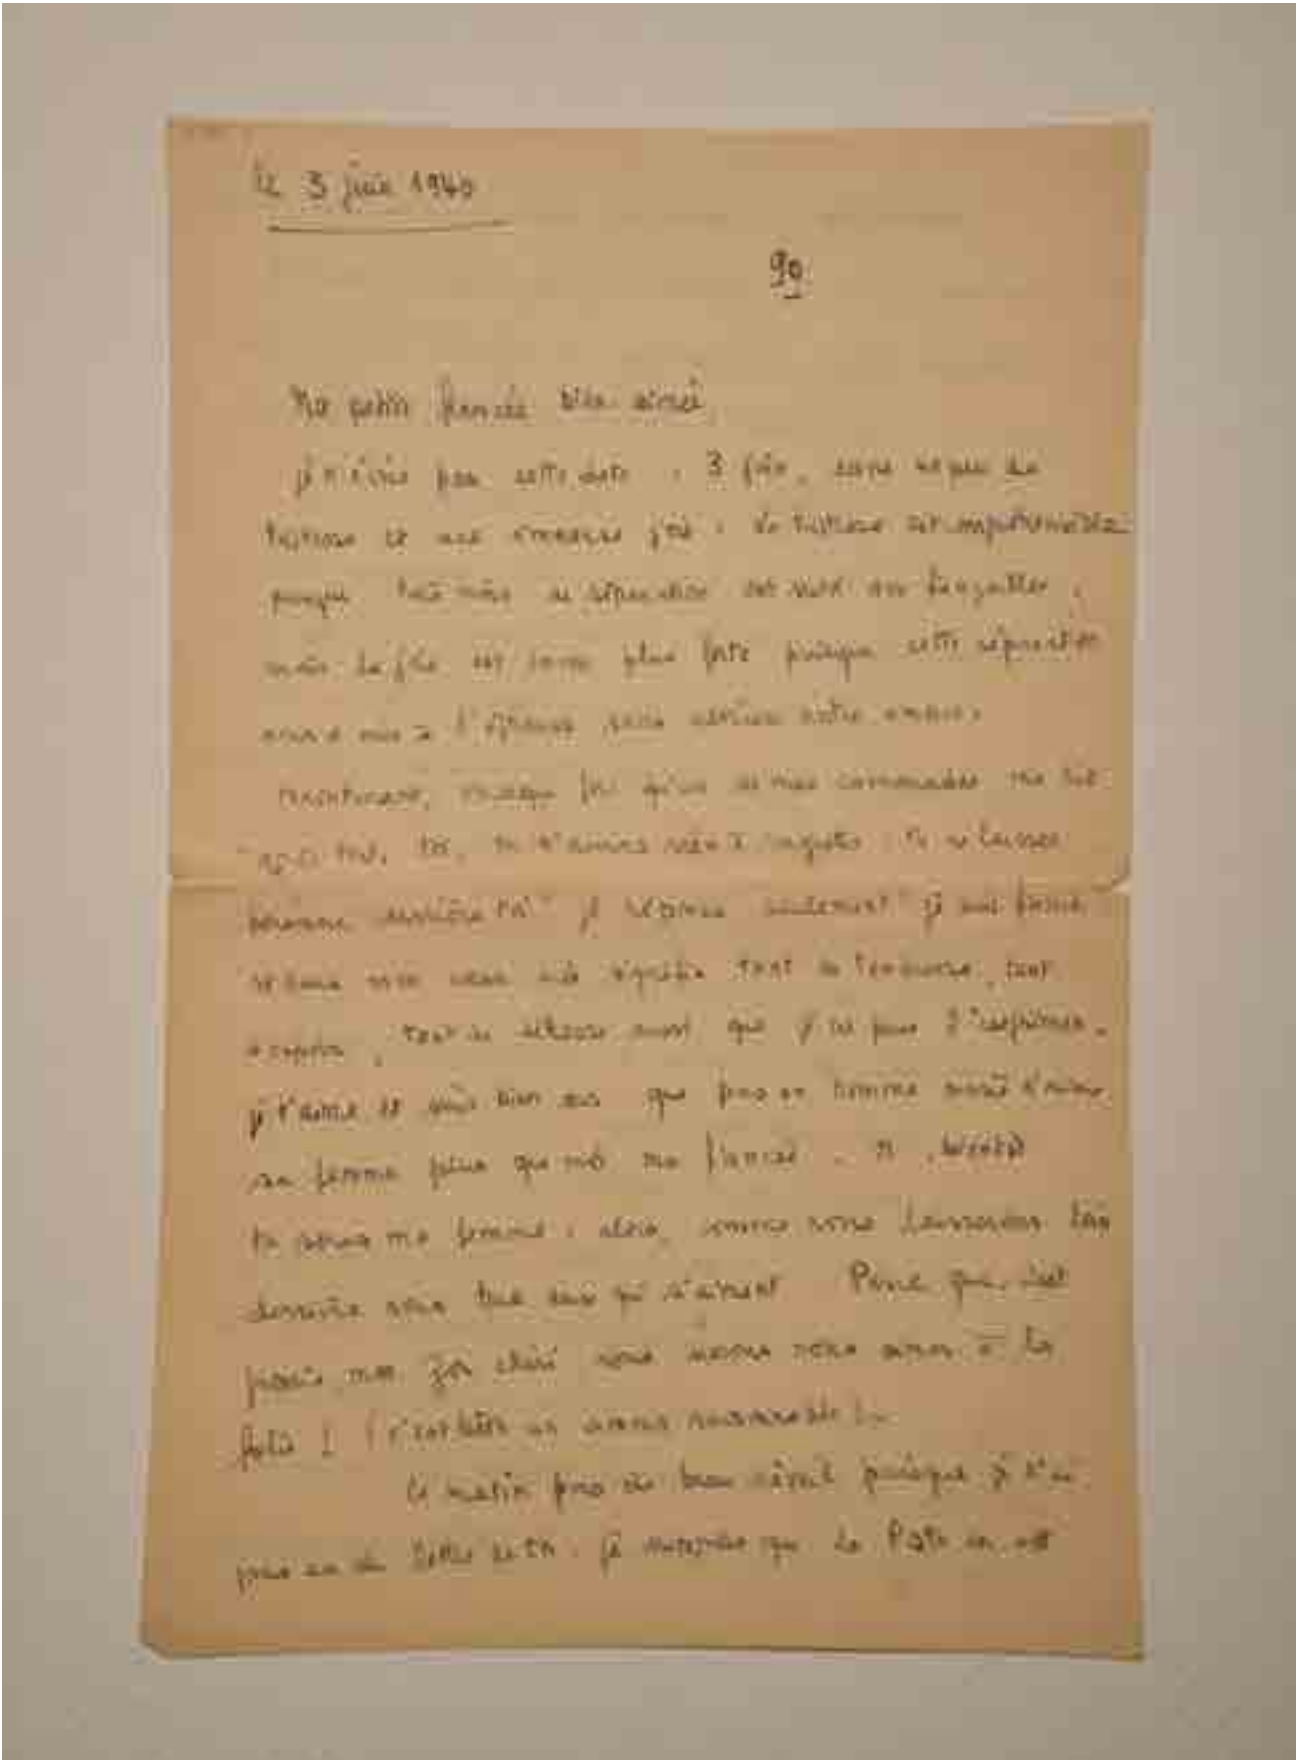 le 3 juin 1940
90
Ma petite fiancée bien aimée,
je n'écris pas cette date : 3 juin, sans un peu de
tristesse et une immense joie : la tristesse est compréhensible
puisque trois mois de séparation ont suivi nos fiançailles,
mais la joie est encore plus forte puisque cette séparation
nous a mis à l'épreuve sans altérer notre amour.
Maintenant, chaque fois qu'un de mes camarades me dit
toi, tu n'auras rien à regretter, tu ne laisses
personne derrière toi" je réponds seulement "je suis fiancé"
et dans mon cœur cela signifie tant de tendresse, tant
d'espoir, tant de aussi, que je ne puis l'exprimer.
je t'aime et suis bien sûr que pas un homme marié n'aime
sa femme plus que moi ma fiancée. bientôt
tu seras ma femme ; alors, comme nous laisserons loin
derrière nous tous ceux qui s'aiment. Parce que, c'est
promis, mon chéri, nous nous aimer à la
folie ! (c'est un amour raisonnable !..
Ce matin pas de beau réveil puisque je n'ai
pas eu de lettre de toi. je suppose que la Poste en est